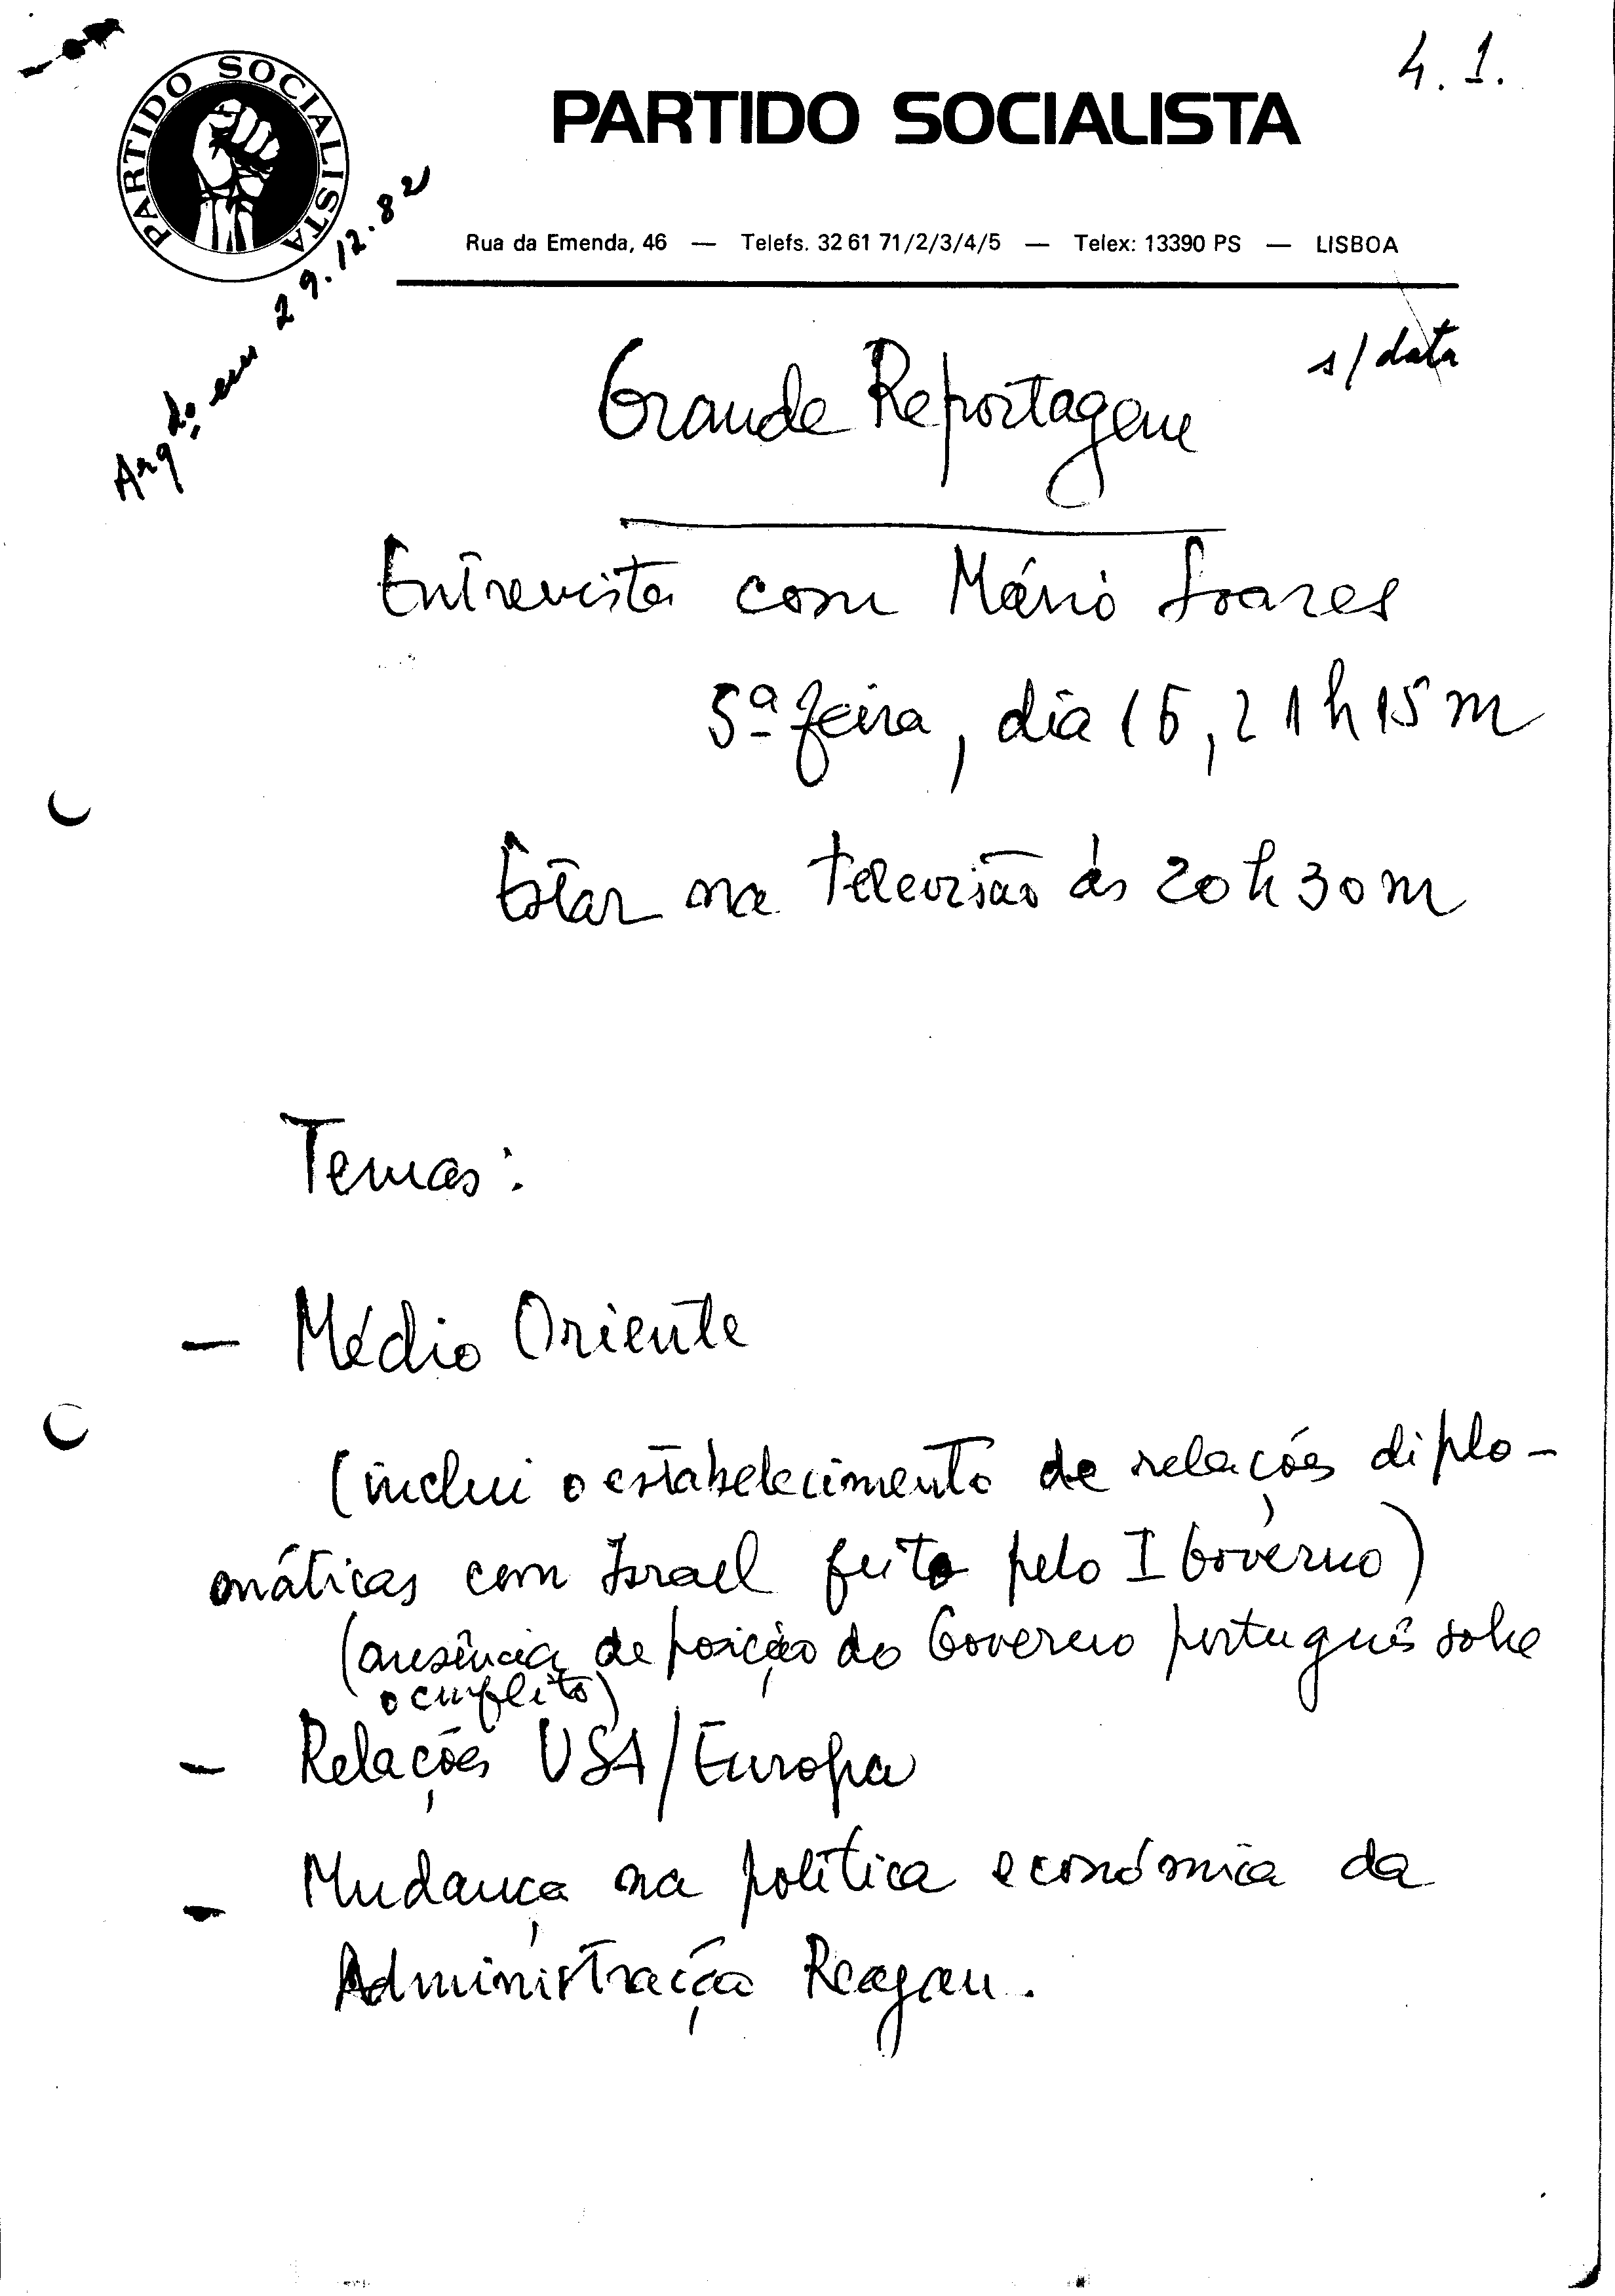 4.1.
PARTIDO SOCIALISTA
PARTIDO SOCIALISTA
Rua da Emenda, 46 — Telefs. 32 61 71/2/3/4/5 — Telex: 13390 PS — LISBOA
Arqdo. em 29.12.82
s/data
Grande Reportagem
Entrevista com Mário Soares
5ª feira, dia 15, 21h15m
Estar na Televisão às 20h30m
Temas:
— Médio Oriente
(inclui o estabelecimento de relações diplo-
máticas com Israel feito pelo I Governo)
(ausência de posição do Governo português sobre
o conflito)
— Relações USA/Europa
— Mudança na política económica da
Administração Reagan.